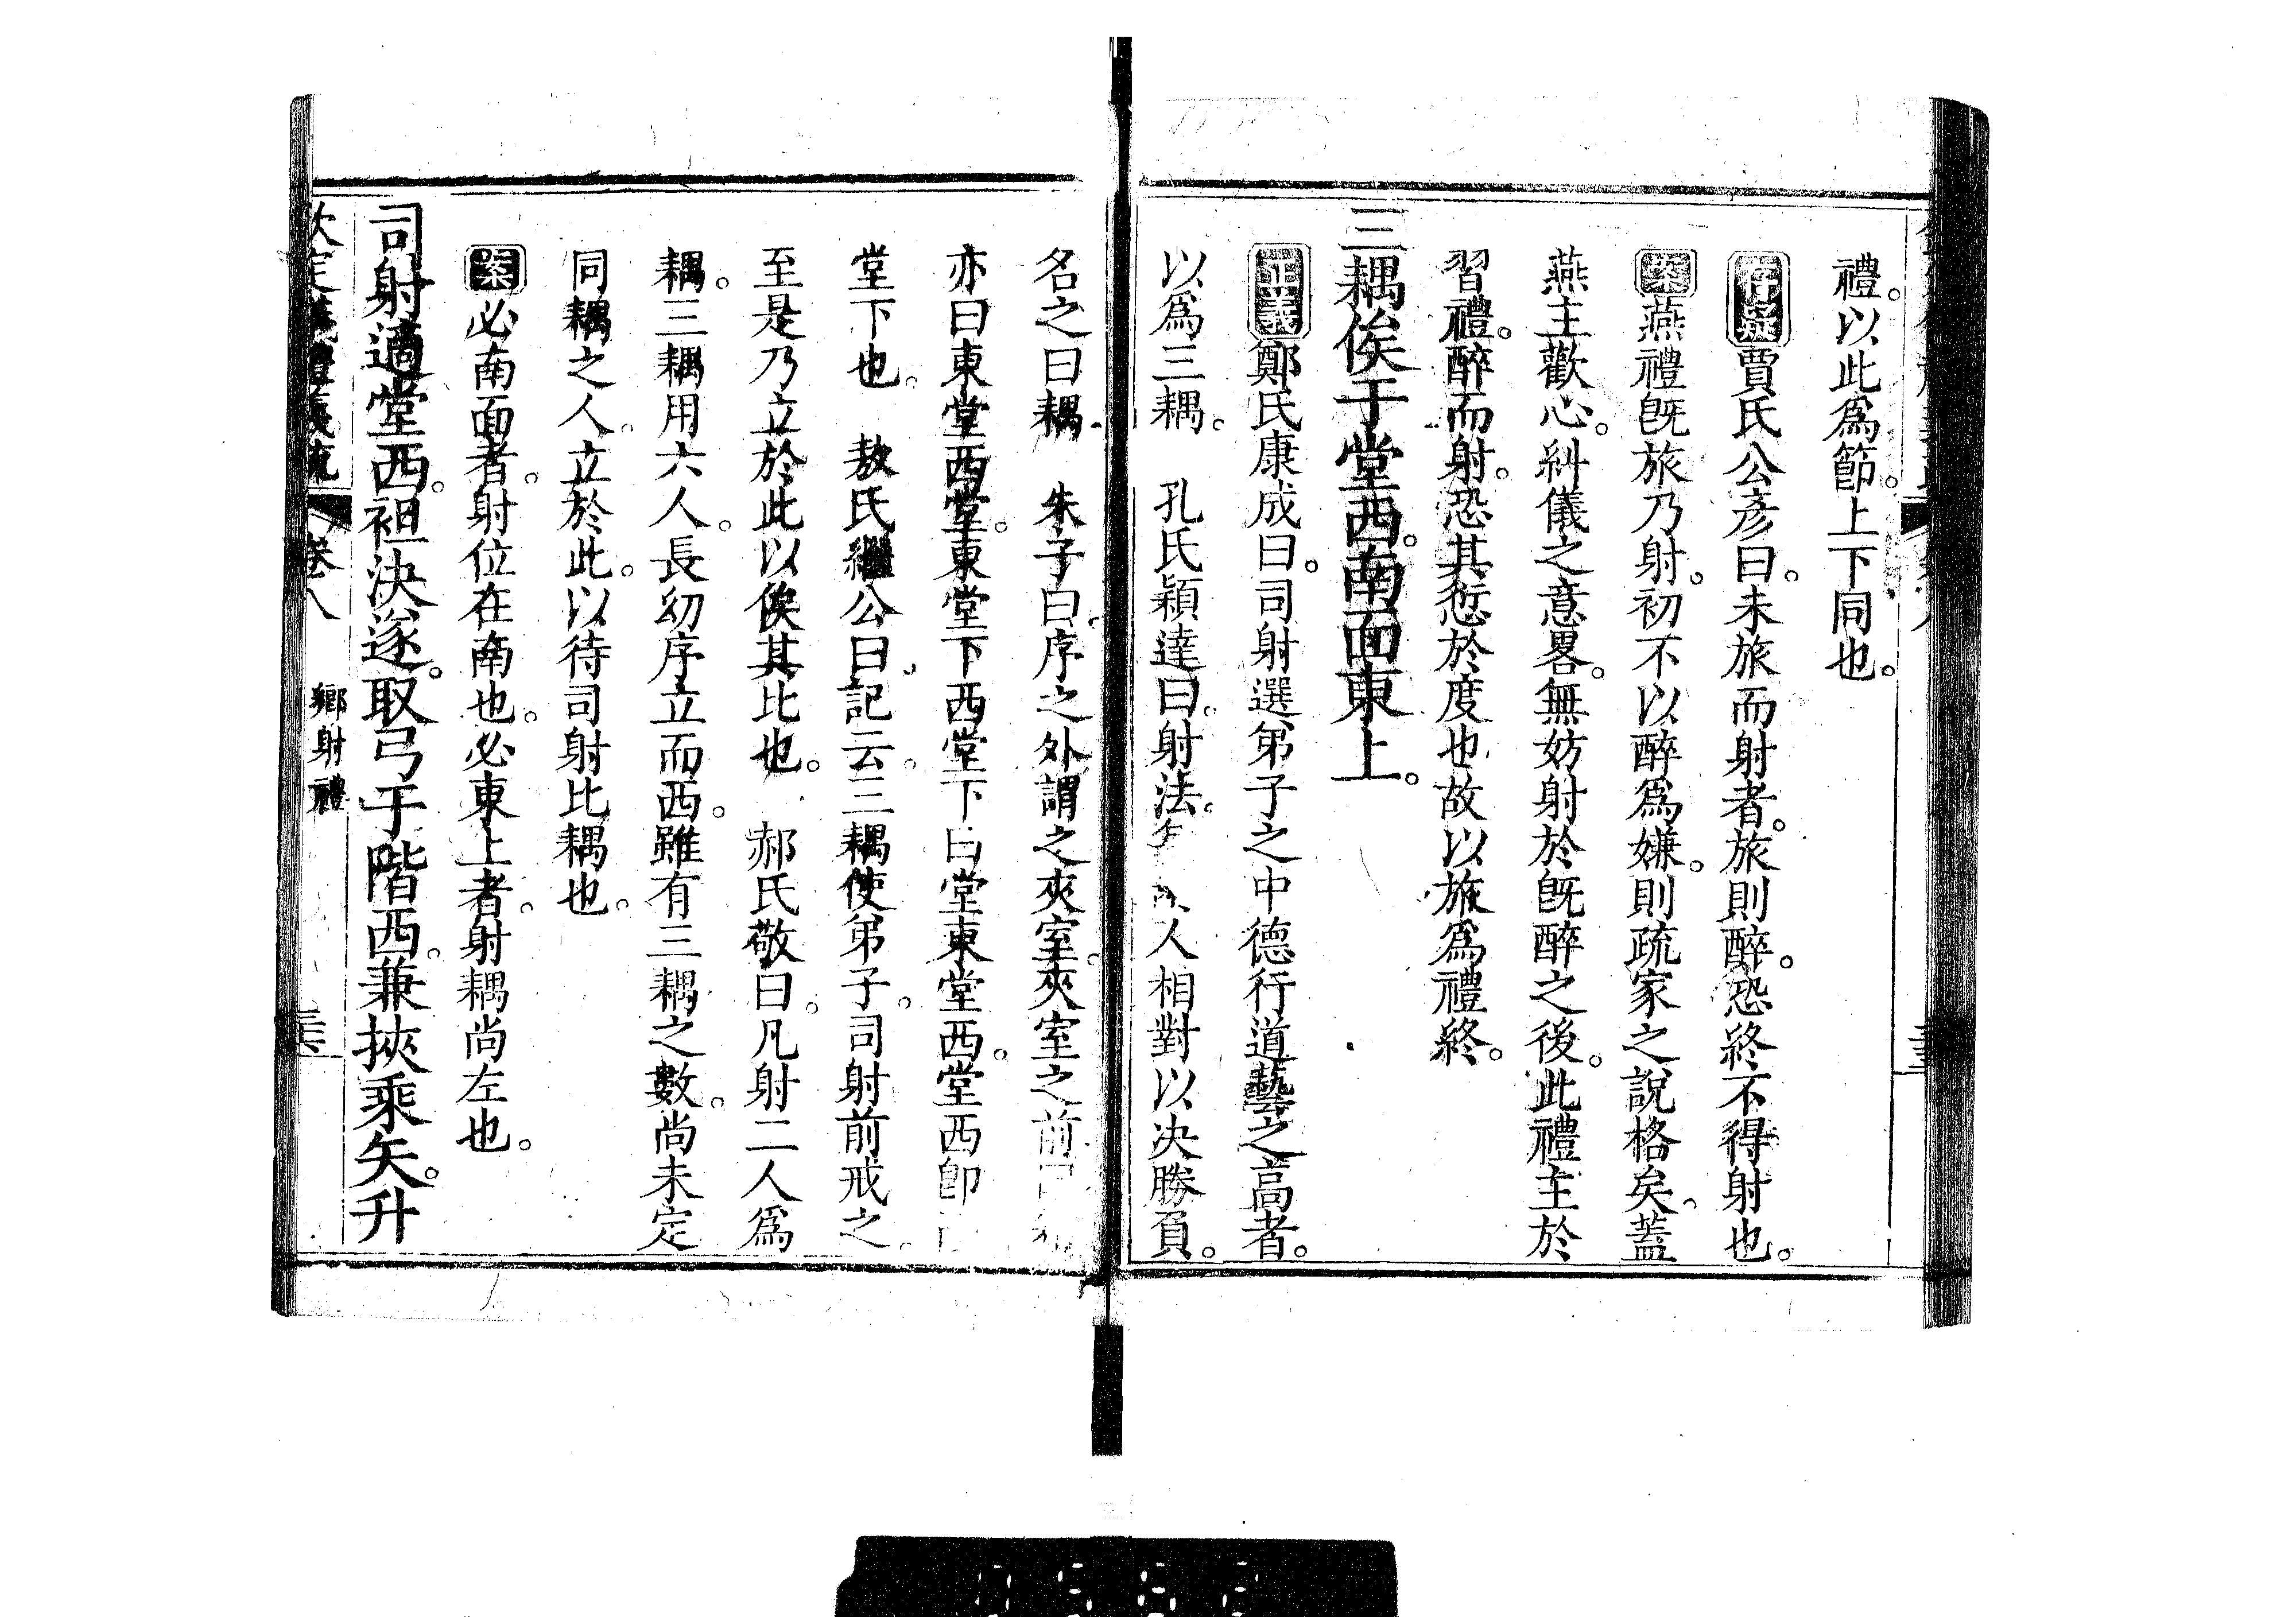 禮。以此爲節。上下同也。
存疑賈氏公彥曰。未旅而射者。旅則醉。恐終不得射也。
案燕禮旣旅乃射。初不以醉爲嫌。則疏家之說格矣。蓋
燕主歡心。糾儀之意畧。無妨射於旣醉之後。此禮主於
習禮。醉而射。恐其愆於度也故以旅爲禮終。
三耦俟于堂西。南面東上。
正義鄭氏康成曰。司射選弟子之中德行道藝之高者。
以爲三耦。 孔氏穎達曰。射法。人相對以决勝負。
名之曰耦。 朱子曰。序之外謂之夾室。夾室之前
亦曰東堂西堂。東堂下西堂下曰堂東堂西。堂西卽
堂下也。 敖氏繼公曰。記云。三耦使弟子。司射前戒之。
至是乃立於此以俟其比也。 郝氏敬曰。凡射二人爲
耦。三耦用六人。長幼序立而西。雖有三耦之數。尚未定
同耦之人。立於此。以待司射比耦也。
案必南面者。射位在南也。必東上者。射耦尚左也。
司射適堂西。袒決遂。取弓于階西。兼挾乘矢。升
欽定儀禮義疏 卷八 鄉射禮